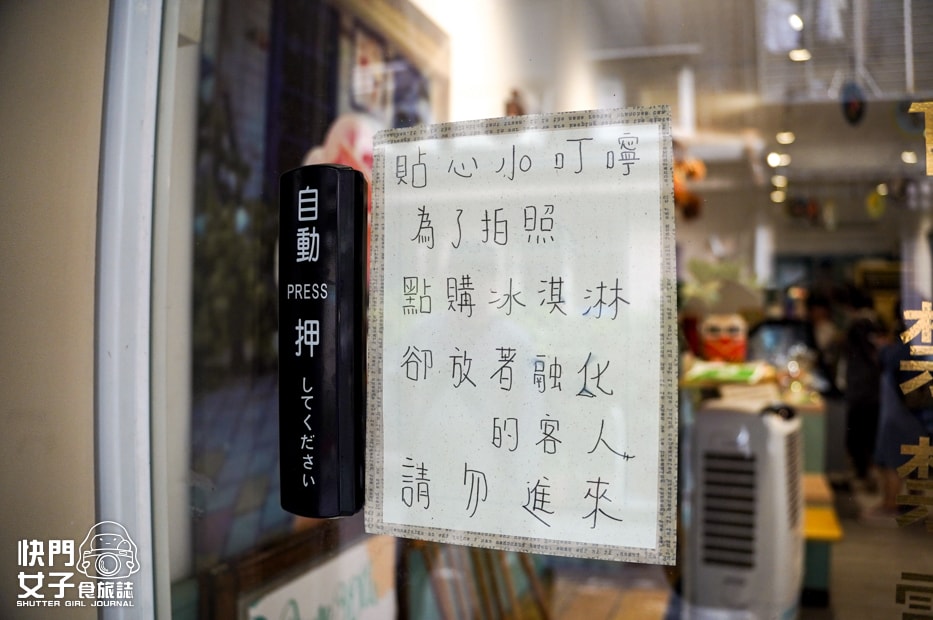 自動
PRESS
押
してください
貼心小叮嚀
為了拍照
點購冰淇淋
卻放著融化
的客人
請勿進來
快門
女子食旅誌
SHUTTER GIRL JOURNAL